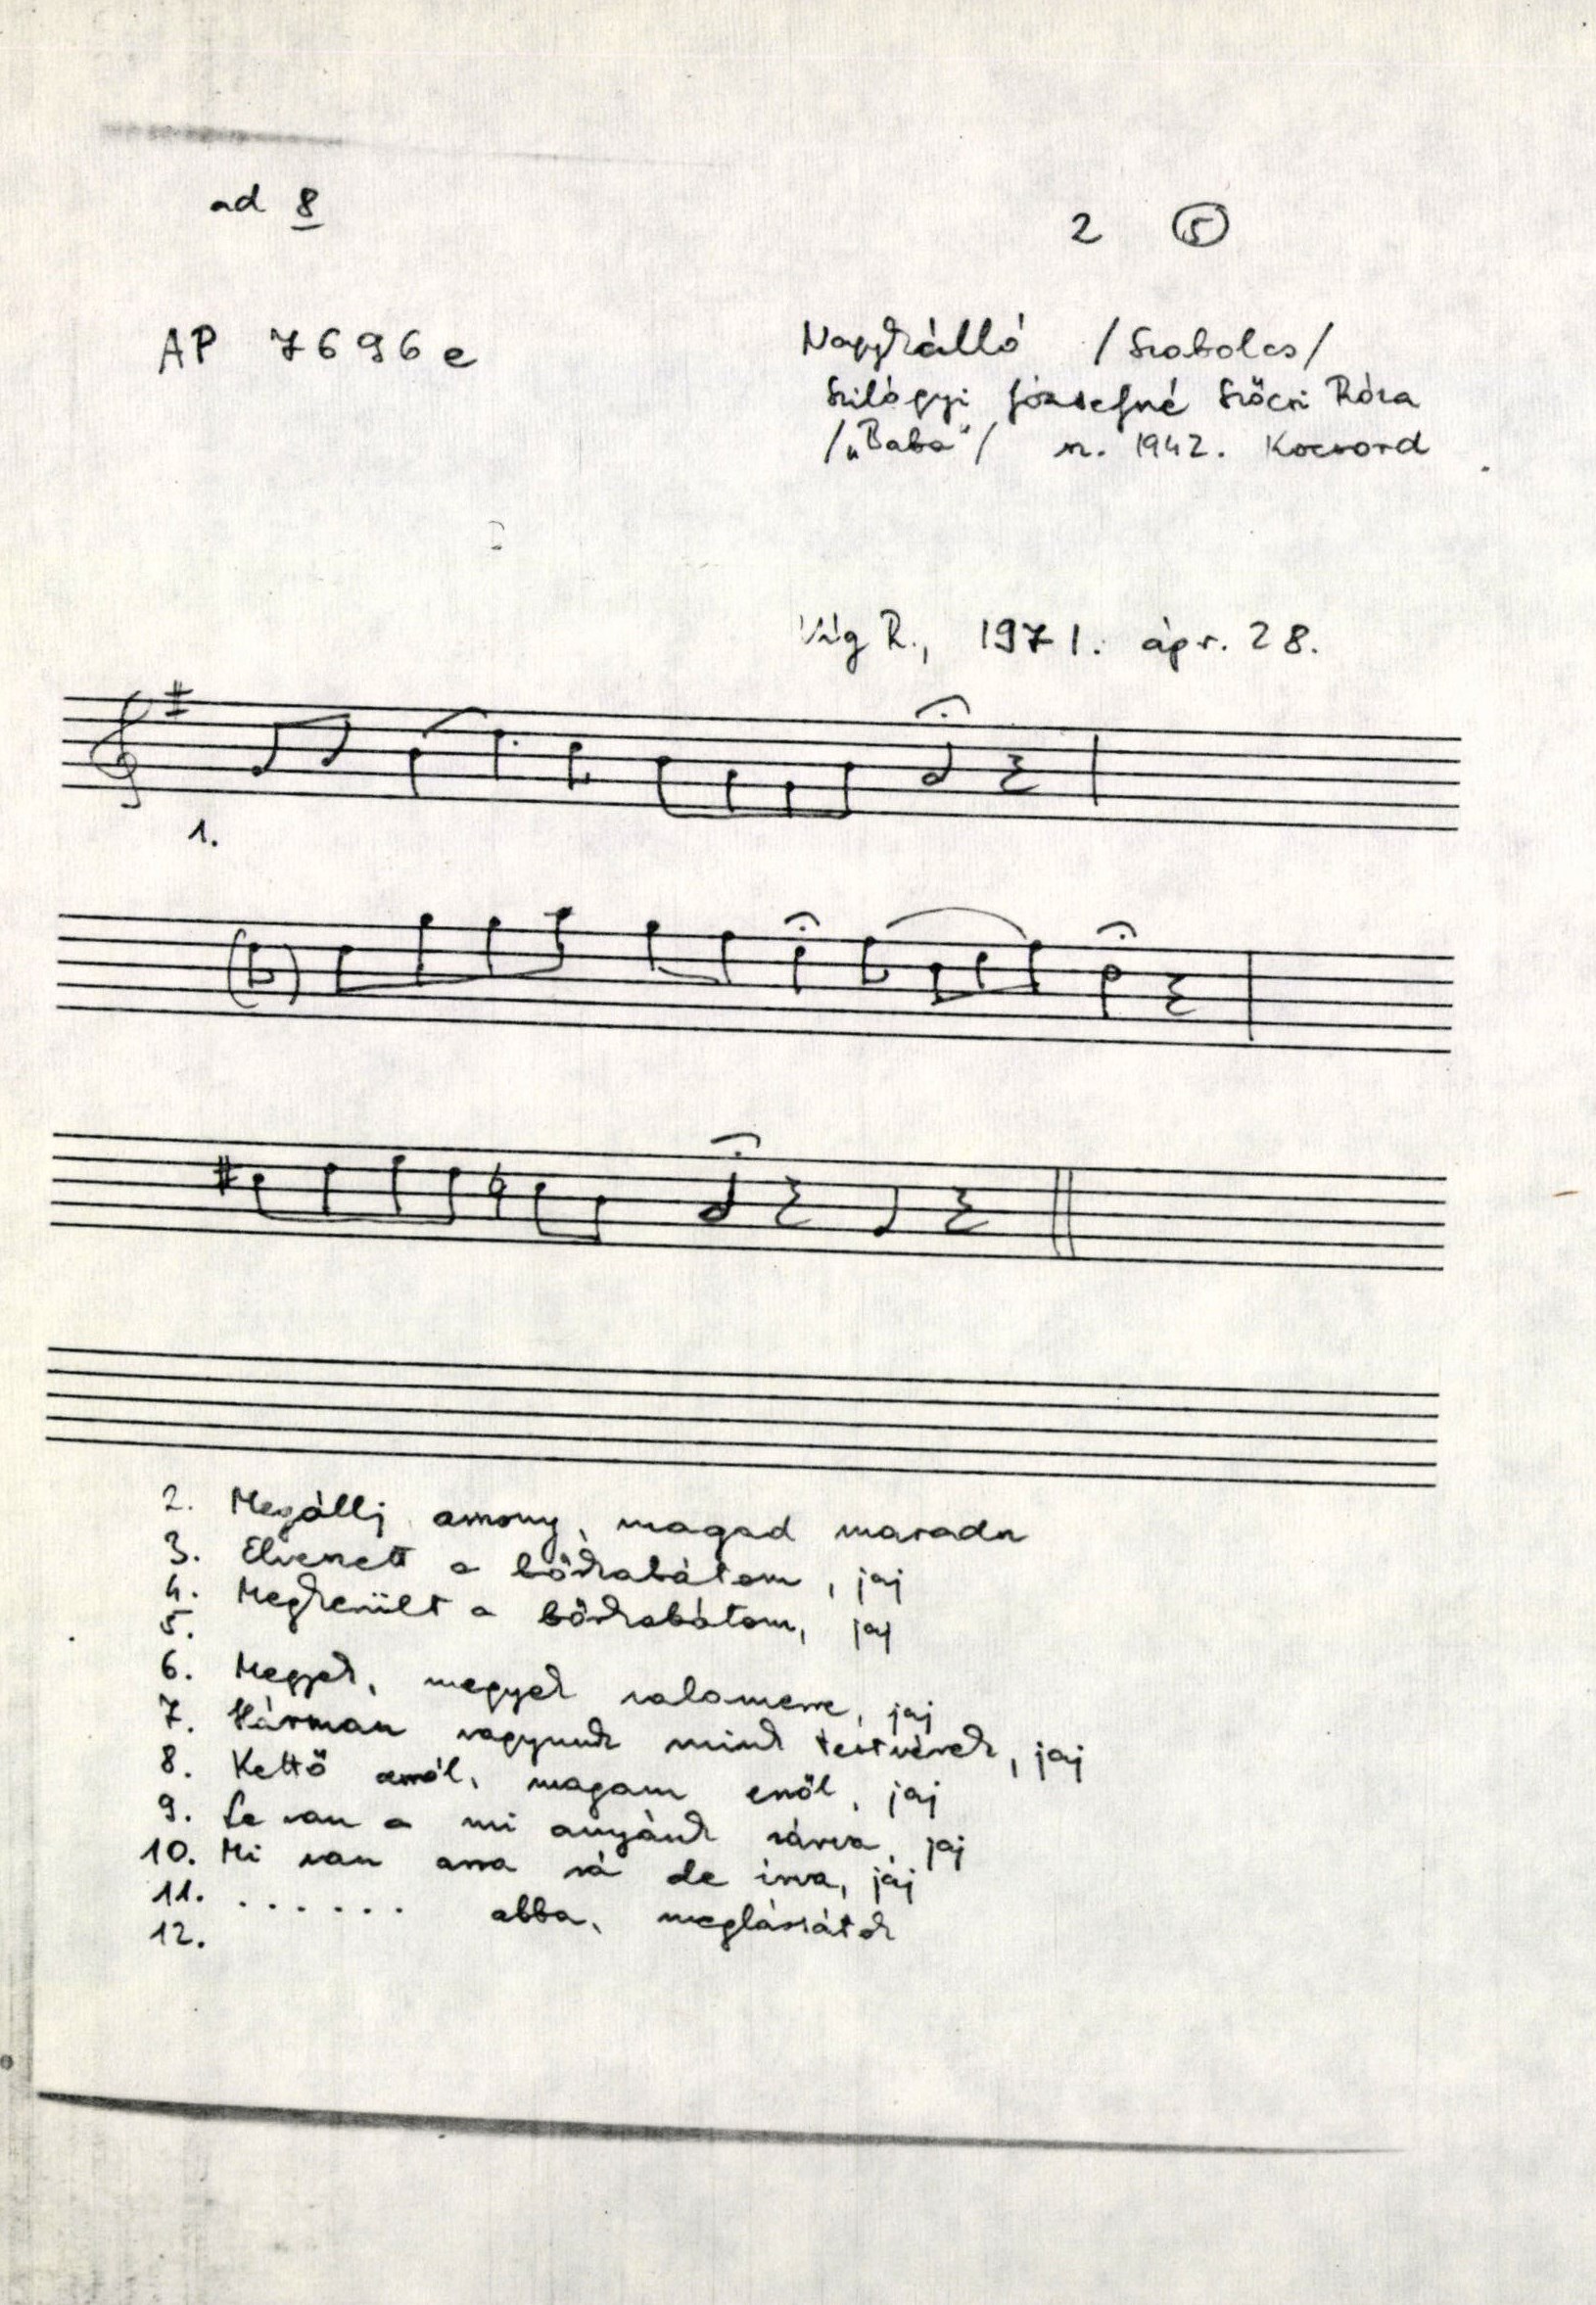 ad 8
2 5
AP 7696 e
Nagykálló /Szabolcs/
Szilágyi Józsefné Szőcsi Róza
/„Baba"/ sz. 1942. Kocsord
Víg R., 1971. ápr. 28.
1.
2. Megállj amony, magad maradn
3. Elveszett a bőszkabátom, jaj
4. Megkerült a bőszkabátom, jaj
5.
6. Megyek, megyek valamerre, jaj
7. Hárman vagyunk mink testvérek, jaj
8. Kettő arról, magam erről, jaj
9. Le van a mi anyánk zárva, jaj
10. Mi van arra rá de írva, jáj
11. . . . . . . abba, meglássátok
12.